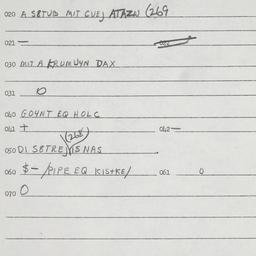 020 A S8TUD MIT GUEJ ATAZN (269
021 —
030 MIT A KRUMUYN DAX
031 O
040 GOYNT EQ HOLC
041 + 042 —
050 DI S8TREJ (268) IS NAS
060 $- /PIPE EQ KIS+KE/ 061 O
070 O